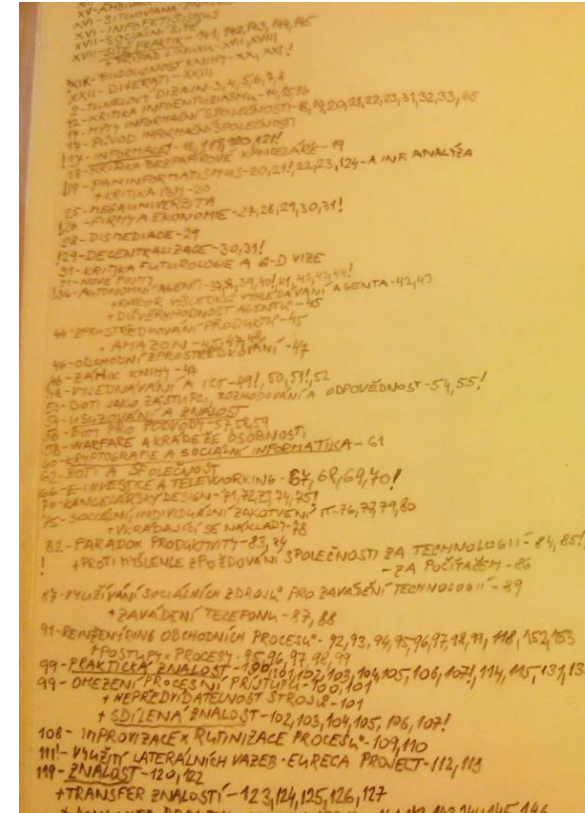 XV-AMBI
XVI-SITUOVANÁ ZNALOST
XVI-INFOFETIŠISMUS
XVII-SOCIÁLNÍ SÍTĚ
XVII-SÍTĚ PRAKTIK-141,142,143,144,145
+PŘÍPAD LINUXU-XVII,XVIII
!XIX-BUDOUCNOST KNIHY-XX,XXI!
XXII-DIGERATI-XXIII
2-TUNELOVÝ DIZAJN-3,4,5,6,7,8
12-KRITIKA INFOENTUZIASMU-14,15,16
17-MÝTY INFORMAČNÍ SPOLEČNOSTI-18,19,20,21,22,23,31,32,33,65
17-PŮVOD INFORMAČNÍ SPOLEČNOSTI
!17-INFORMACE-18,119,120,121!
18-KRITIKA BEZPAPÍROVÉ KANCELÁŘE-19
!19-PANINFORMATISMUS-20,21!,22,23,124-A INF. ANALÝZA
+KRITIKA IBM-20
25-MEGAUNIVERZITA
!26-FIRMY A EKONOMIE-27,28,29,30,31!
28-DISMEDIACE-29
!29-DECENTRALIZACE-30,31!
31-KRITIKA FUTUROLOGIE A 6-D VIZE
31-NOVÉ
!36-AUTONOMNÍ AGENTI-37,38,39,40!,41,42,43,44!
VÝSLEDKŮ VYHLEDÁVÁNÍ AGENTA-42,43
+DŮVĚRYHODNOST AGENTŮ-45
44-ZPROSTŘEDKOVÁNÍ PRODUKTŮ-45
+AMAZON-45,47,48
46-OBCHODNÍ ZPROSTŘEDKOVÁNÍ-47
46-ZÁNIK KNIHY-47
48-VYJEDNÁVÁNÍ A ICT-49!,50,51!,52
53-BOTI JAKO ZÁSTUPCI, ROZHODOVÁNÍ A ODPOVĚDNOST-54,55!
54-USUZOVÁNÍ A ZNALOST
56-BOTI PRO PODVODY-57,58,59
58-WARFARE A KRÁDEŽE OSOBNOSTI
60-KRYPTOGRAFIE A SOCIÁLNÍ INFORMATIKA-61
62-BOTI A SPOLEČNOST
66-E-INVESTICE A TELEWORKING-67,68,69,70!
70-KANCELÁŘSKÝ DESIGN-71,72,73,74,75!
75-SOCIÁLNÍ, INDIVIDUÁLNÍ ZAKOTVENÍ IT-76,77,79,80
+VKRÁDAJÍCÍ SE NÁKLADY-78
82-PARADOX PRODUKTIVITY-83,84
! +PROTIMYŠLENCE ZPOŽĎOVÁNÍ SPOLEČNOSTI ZA TECHNOLOGIÍ-84,85!
-ZA POČÍTAČEM-86
87-VYUŽÍVÁNÍ SOCIÁLNÍCH ZDROJŮ PRO ZAVÁDĚNÍ TECHNOLOGIÍ-89
+ZAVÁDENÍ TELEFONU-87,88
91-REINŽENÝRING OBCHODNÍCH PROCESŮ-92,93,94,95,96,97,98,99,118,152,153
+POSTUPY × PROCESY-95,96,97,98,99
99-PRAKTICKÁ ZNALOST-100,101,102,103,104,105,106,107!,114,115,131,13
99-OMEZENÍ PROCESNÍ PŘÍSTUPU-100,101
+NEPŘEDVÍDATELNOST STROJŮ-101
+SDÍLENÁ ZNALOST-102,103,104,105,106,107!
108-IMPROVIZACE × RUTINIZACE PROCESŮ-109,110
111!-VYUŽITÍ LATERÁLNÍCH VAZEB-EURECA PROJECT-112,113
119-ZNALOST-120,122
+TRANSFER ZNALOSTÍ-123,124,125,126,127